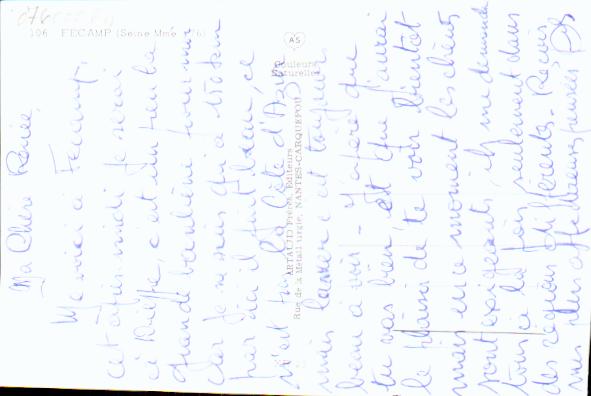 106 FECAMP (Seine Mme 76)
AS
Couleurs
Naturelles
ARTAUD Frères, Editeurs
Rue de la Métallurgie, NANTES-CARQUEFOU
Ma Chère Renée,
Me voici à Fécamp,
cet après-midi je serai
à Dieppe, c'est un peu la
grande banlieue pour moi
car je ne sais qui a
par là il fait beau, ce
n'est pas la Côte d'Azur
mais la mer est toujours
belle à voir - J'espère que
tu vas bien et que j'aurai
le plaisir de te voir bientôt
mais en ce moment les clients
sont exigeants, ils me demandent
tous à la fois, seulement dans
des régions différentes. Reçois
mes plus affectueuses pensées